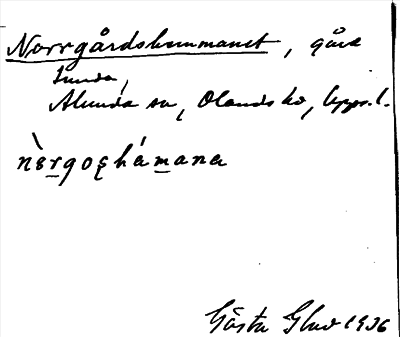 Norrgårdshemmanet, gård
Sunda,
Alunda sn, Olands hd, Upps. l.
nèrgoshámana
Gösta Glad 1936